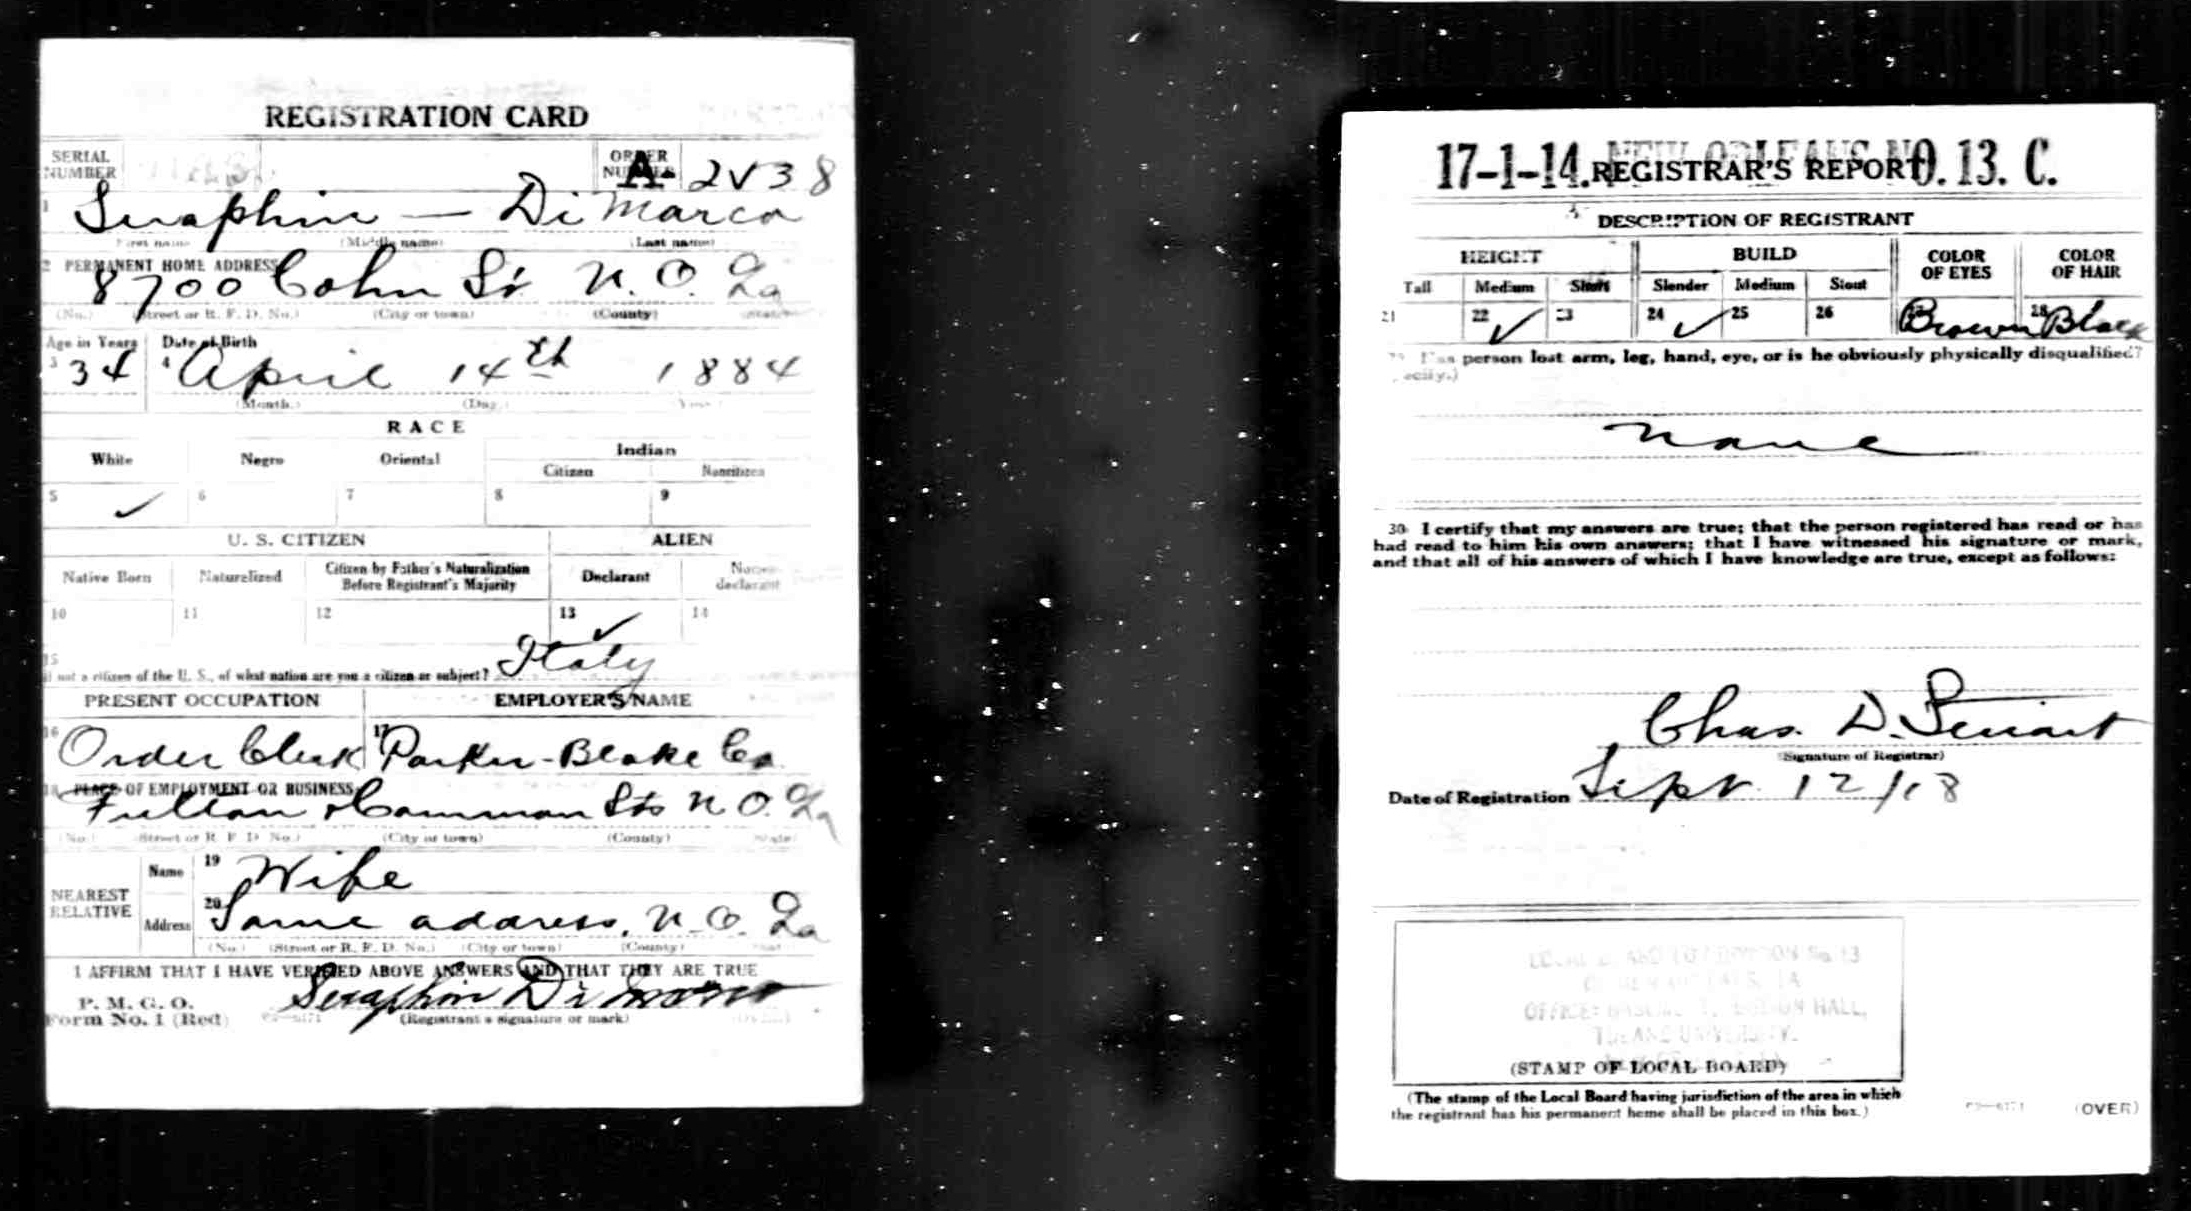 REGISTRATION CARD
SERIAL NUMBER
ORDER NUMBER A- 2538
1 Seraphin — Di Marco
(First name) (Middle name) (Last name)
2 PERMANENT HOME ADDRESS
8700 Cohn St. N. O. La
(No.) (Street or R. F. D. No.) (City or town) (County) (State)
Age in Years Date of Birth
3 34 4 April 14th 1884
(Month.) (Day.) (Year.)
RACE
White Negro Oriental Indian
Citizen Noncitizen
5 ✓ 6 7 8 9
U. S. CITIZEN ALIEN
Native Born Naturalized Citizen by Father's Naturalization Before Registrant's Majority Declarant Non-declarant
10 11 12 13 ✓ 14
15 If not a citizen of the U. S., of what nation are you a citizen or subject? Italy
PRESENT OCCUPATION EMPLOYER'S NAME
16 Order Clerk 17 Parker-Blake Co.
18 PLACE OF EMPLOYMENT OR BUSINESS
Fulton & Common Sts N. O. La
(No.) (Street or R. F. D. No.) (City or town) (County) (State)
NEAREST RELATIVE
Name 19 Wife
Address 20 Same address, N. O. La
(No.) (Street or R. F. D. No.) (City or town) (County) (State)
I AFFIRM THAT I HAVE VERIFIED ABOVE ANSWERS AND THAT THEY ARE TRUE
P. M. G. O.
Form No. 1 (Red)
Seraphin Di Marco
(Registrant's signature or mark) (OVER)
17-1-14. NEW ORLEANS NO. 13. C.
REGISTRAR'S REPORT
DESCRIPTION OF REGISTRANT
HEIGHT BUILD COLOR OF EYES COLOR OF HAIR
Tall Medium Short Slender Medium Stout
21 22 ✓ 23 24 ✓ 25 26 Brown 28 Black
29 Has person lost arm, leg, hand, eye, or is he obviously physically disqualified?
(Specify.)
None
30 I certify that my answers are true; that the person registered has read or has
had read to him his own answers; that I have witnessed his signature or mark,
and that all of his answers of which I have knowledge are true, except as follows:
Chas. D. Stewart
(Signature of Registrar)
Date of Registration Sept. 12/18
HALL,
TULANE UNIVERSITY.
(STAMP OF LOCAL BOARD)
(The stamp of the Local Board having jurisdiction of the area in which
the registrant has his permanent home shall be placed in this box.)
(OVER)